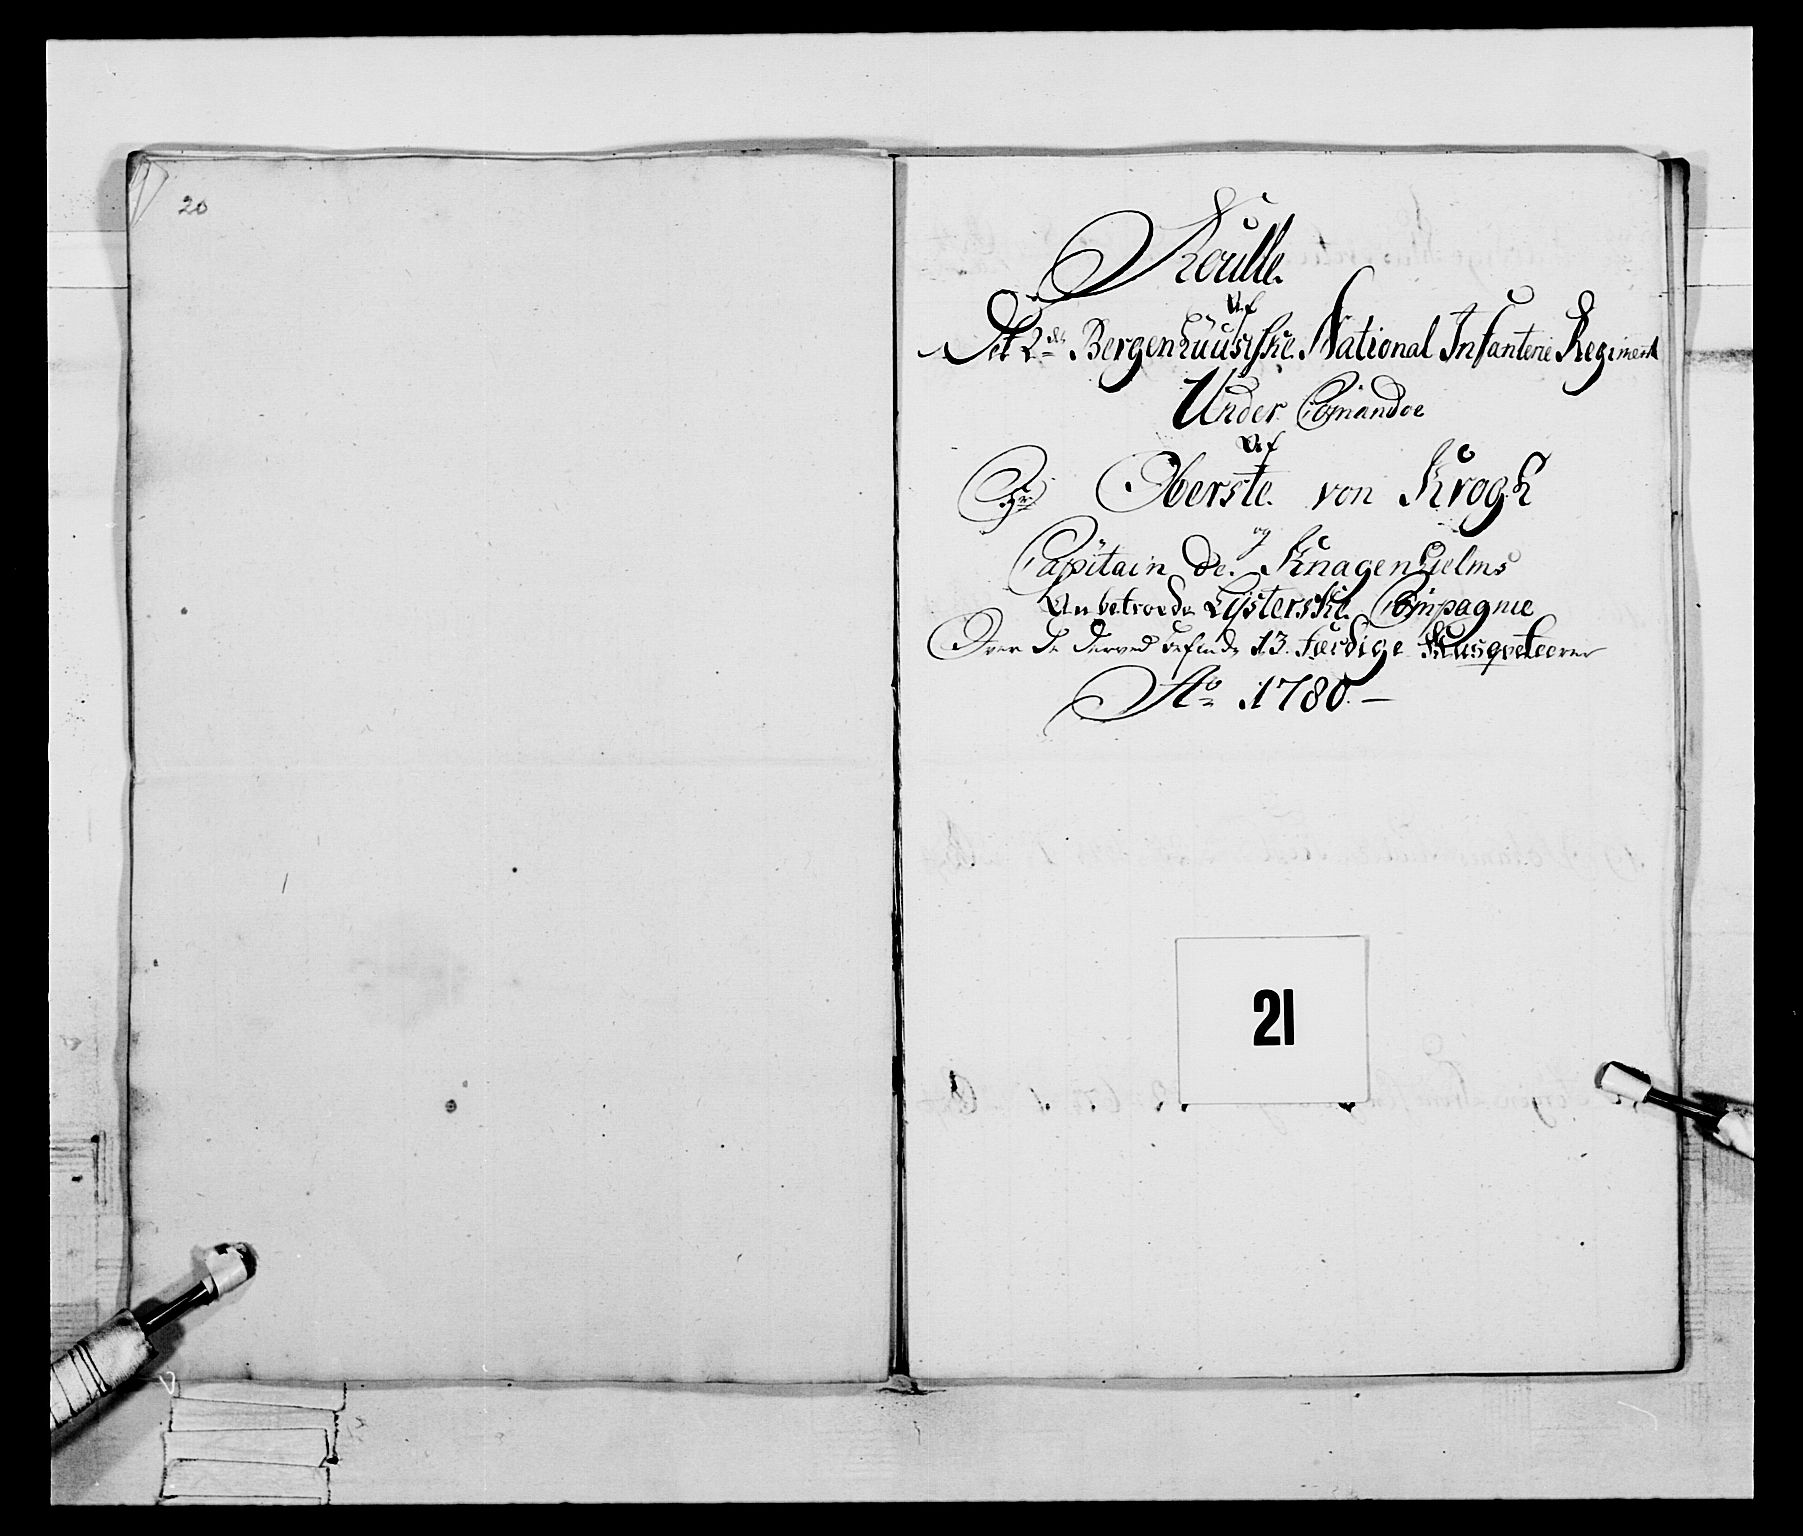 20
Roulle
Af
Det 2det Bergenhuusiske National Infanterie Regiment
Under Comandoe
Af
Hr Oberste von Krogh
og
Capitain de Knagenhielms
Anbetroede Lysterske Compagnie
Over de derved befindl 13 færdige Musqveteerer
Ao 1780 –
21